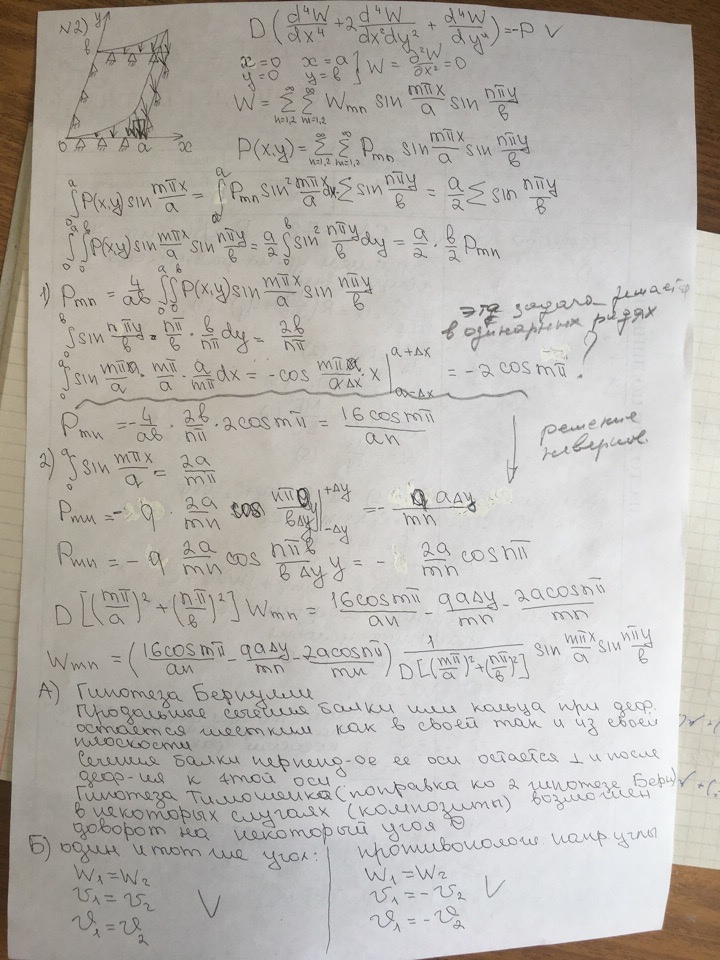 №2)
y
в
0
a
x
D(d⁴W/dx⁴ + 2 d⁴W/dx²dy² + d⁴W/dy⁴) = -P V
x=0 x=a
y=0 y=в ] W = ∂²W/∂x² = 0
W = ∞Σn=1,2 ∞Σm=1,2 Wmn sin mπx/a sin nπy/в
P(x,y) = ∞Σn=1,2 ∞Σm=1,2 Pmn sin mπx/a sin nπy/в
₀∫ᵃ P(x,y) sin mπx/a = ₀∫ᵃ Pmn sin² mπx/a dx Σ sin nπy/в = a/2 Σ sin nπy/в
₀∫ᵃ ₀∫ᵇ P(x,y) sin mπx/a sin nπy/в = a/2 ₀∫ᵇ sin² nπy/в dy = a/2 · в/2 Pmn
1) Pmn = 4/aв ₀∫ᵃ ₀∫ᵇ P(x,y) sin mπx/a sin nπy/в
эта задача решается
в одинарных рядах
₀∫ᵇ sin nπy/в · nπ/в · в/nπ dy = 2в/nπ
₀∫ᵃ sin mπa/a · mπ/a · a/mπ dx = -cos mπa/aΔx · x | a+Δx a-Δx = -2 cos mπ. ?
Pmn = -4/aв · 2в/nπ · 2cosmπ = 16cosmπ/an
решение
неверное.
2) ₀∫ᵃ sin mπx/a = 2a/mπ
Pmn = - q · 2a/mn cos nπy/вΔy | +Δy -Δy = - q aΔy/mn
Pmn = - q 2a/mn cos nπв/вΔy y = - 2a/mn cosnπ
D[(mπ/a)² + (nπ/в)²] Wmn = 16cosmπ/an - qaΔy/mn - 2acosnπ/mn
Wmn = (16cosmπ/an - qaΔy/mn - 2acosnπ/mn) 1/D[(mπ/a)²+(nπ/в)²] sin mπx/a sin nπy/в
А) Гипотеза Бернулли
Продольные сечения балки или кольца при деф.
остается жестким как в своей так и из своей
плоскости
Сечения балки перпенд-ое ее оси остается ⊥ и после
деф-ия к этой оси
Гипотеза Тимошенко (поправка ко 2 гипотезе Берн)
в некоторых случаях (композиты) возможен
доворот на некоторый угол θ
Б) один и тот же угол: противополож напр углы
W₁=W₂ W₁=W₂
v₁=v₂ V v₁=-v₂ V
ϑ₁=ϑ₂ ϑ₁=-ϑ₂